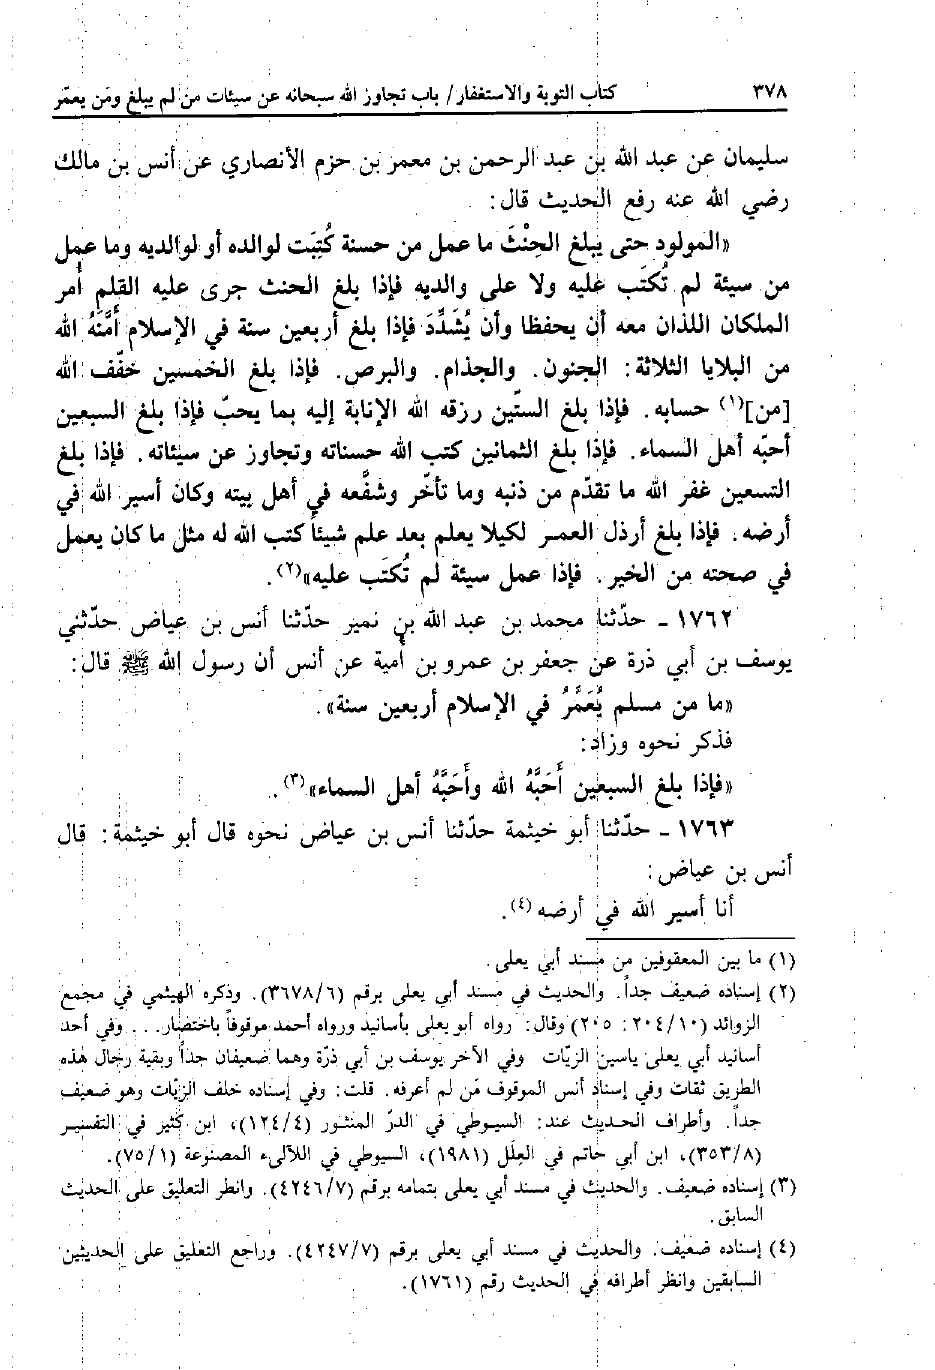 ٣٧٨ كتاب التوبة والاستغفار/ باب تجاوز الله سبحانه عن سيئات من لم يبلغ ومَن يعمّر
سليمان عن عبد الله بن عبد الرحمن بن معمر بن حزم الأنصاري عن أنس بن مالك
رضي الله عنه رفع الحديث قال:
«المولود حتى يبلغ الحِنْثَ ما عمل من حسنة كُتِبَت لوالده أو لوالديه وما عمل
من سيئة لم تُكتَب عليه ولا على والديه فإذا بلغ الحنث جرى عليه القلم أُمر
الملكان اللذان معه أن يحفظا وأن يُشَدِّدَ فإذا بلغ أربعين سنة في الإسلام أَمَّنَهُ الله
من البلايا الثلاثة: الجنون. والجذام. والبرص. فإذا بلغ الخمسين خفّف الله
[من](١) حسابه. فإذا بلغ الستّين رزقه الله الإنابة إليه بما يحبّ فإذا بلغ السبعين
أحبّه أهل السماء. فإذا بلغ الثمانين كتب الله حسناته وتجاوز عن سيئاته. فإذا بلغ
التسعين غفر الله ما تقدّم من ذنبه وما تأخّر وشفَّعه في أهل بيته وكان أسير الله في
أرضه. فإذا بلغ أرذل العمر لكيلا يعلم بعد علم شيئاً كتب الله له مثل ما كان يعمل
في صحته من الخير. فإذا عمل سيئة لم تُكتَب عليه»(٢).
١٧٦٢ - حدّثنا محمد بن عبد الله بن نمير حدّثنا أنس بن عياض حدّثني
يوسف بن أبي ذرة عن جعفر بن عمرو بن أمية عن أنس أن رسول الله ﷺ قال:
«ما من مسلم يُعَمَّرُ في الإسلام أربعين سنة».
فذكر نحوه وزاد:
«فإذا بلغ السبعين أَحَبَّهُ الله وأَحَبَّهُ أهل السماء»(٣).
١٧٦٣ - حدّثنا أبو خيثمة حدّثنا أنس بن عياض نحوه قال أبو خيثمة: قال
أنس بن عياض:
أنا أسير الله في أرضه(٤).
(١) ما بين المعقوفين من مسند أبي يعلى.
(٢) إسناده ضعيف جداً. والحديث في مسند أبي يعلى برقم (٣٦٧٨/٦). وذكره الهيثمي في مجمع
الزوائد (٢٠٤/١٠: ٢٠٥) وقال: رواه أبو يعلى بأسانيد ورواه أحمد موقوفاً باختصار... وفي أحد
أسانيد أبي يعلى ياسين الزيّات وفي الآخر يوسف بن أبي ذرّة وهما ضعيفان جداً وبقية رجال هذه
الطريق ثقات وفي إسناد أنس الموقوف مَن لم أعرفه. قلت: وفي إسناده خلف الزيّات وهو ضعيف
جداً. وأطراف الحديث عند: السيوطي في الدرّ المنثور (١٢٤/٤)، ابن كثير في التفسير
(٣٥٣/٨)، ابن أبي حاتم في العِلَل (١٩٨١)، السيوطي في اللآلىء المصنوعة (٧٥/١).
(٣) إسناده ضعيف. والحديث في مسند أبي يعلى بتمامه برقم (٤٢٤٦/٧). وانظر التعليق على الحديث
السابق.
(٤) إسناده ضعيف. والحديث في مسند أبي يعلى برقم (٤٢٤٧/٧). وراجع التعليق على الحديثين
السابقين وانظر أطرافه في الحديث رقم (١٧٦١).